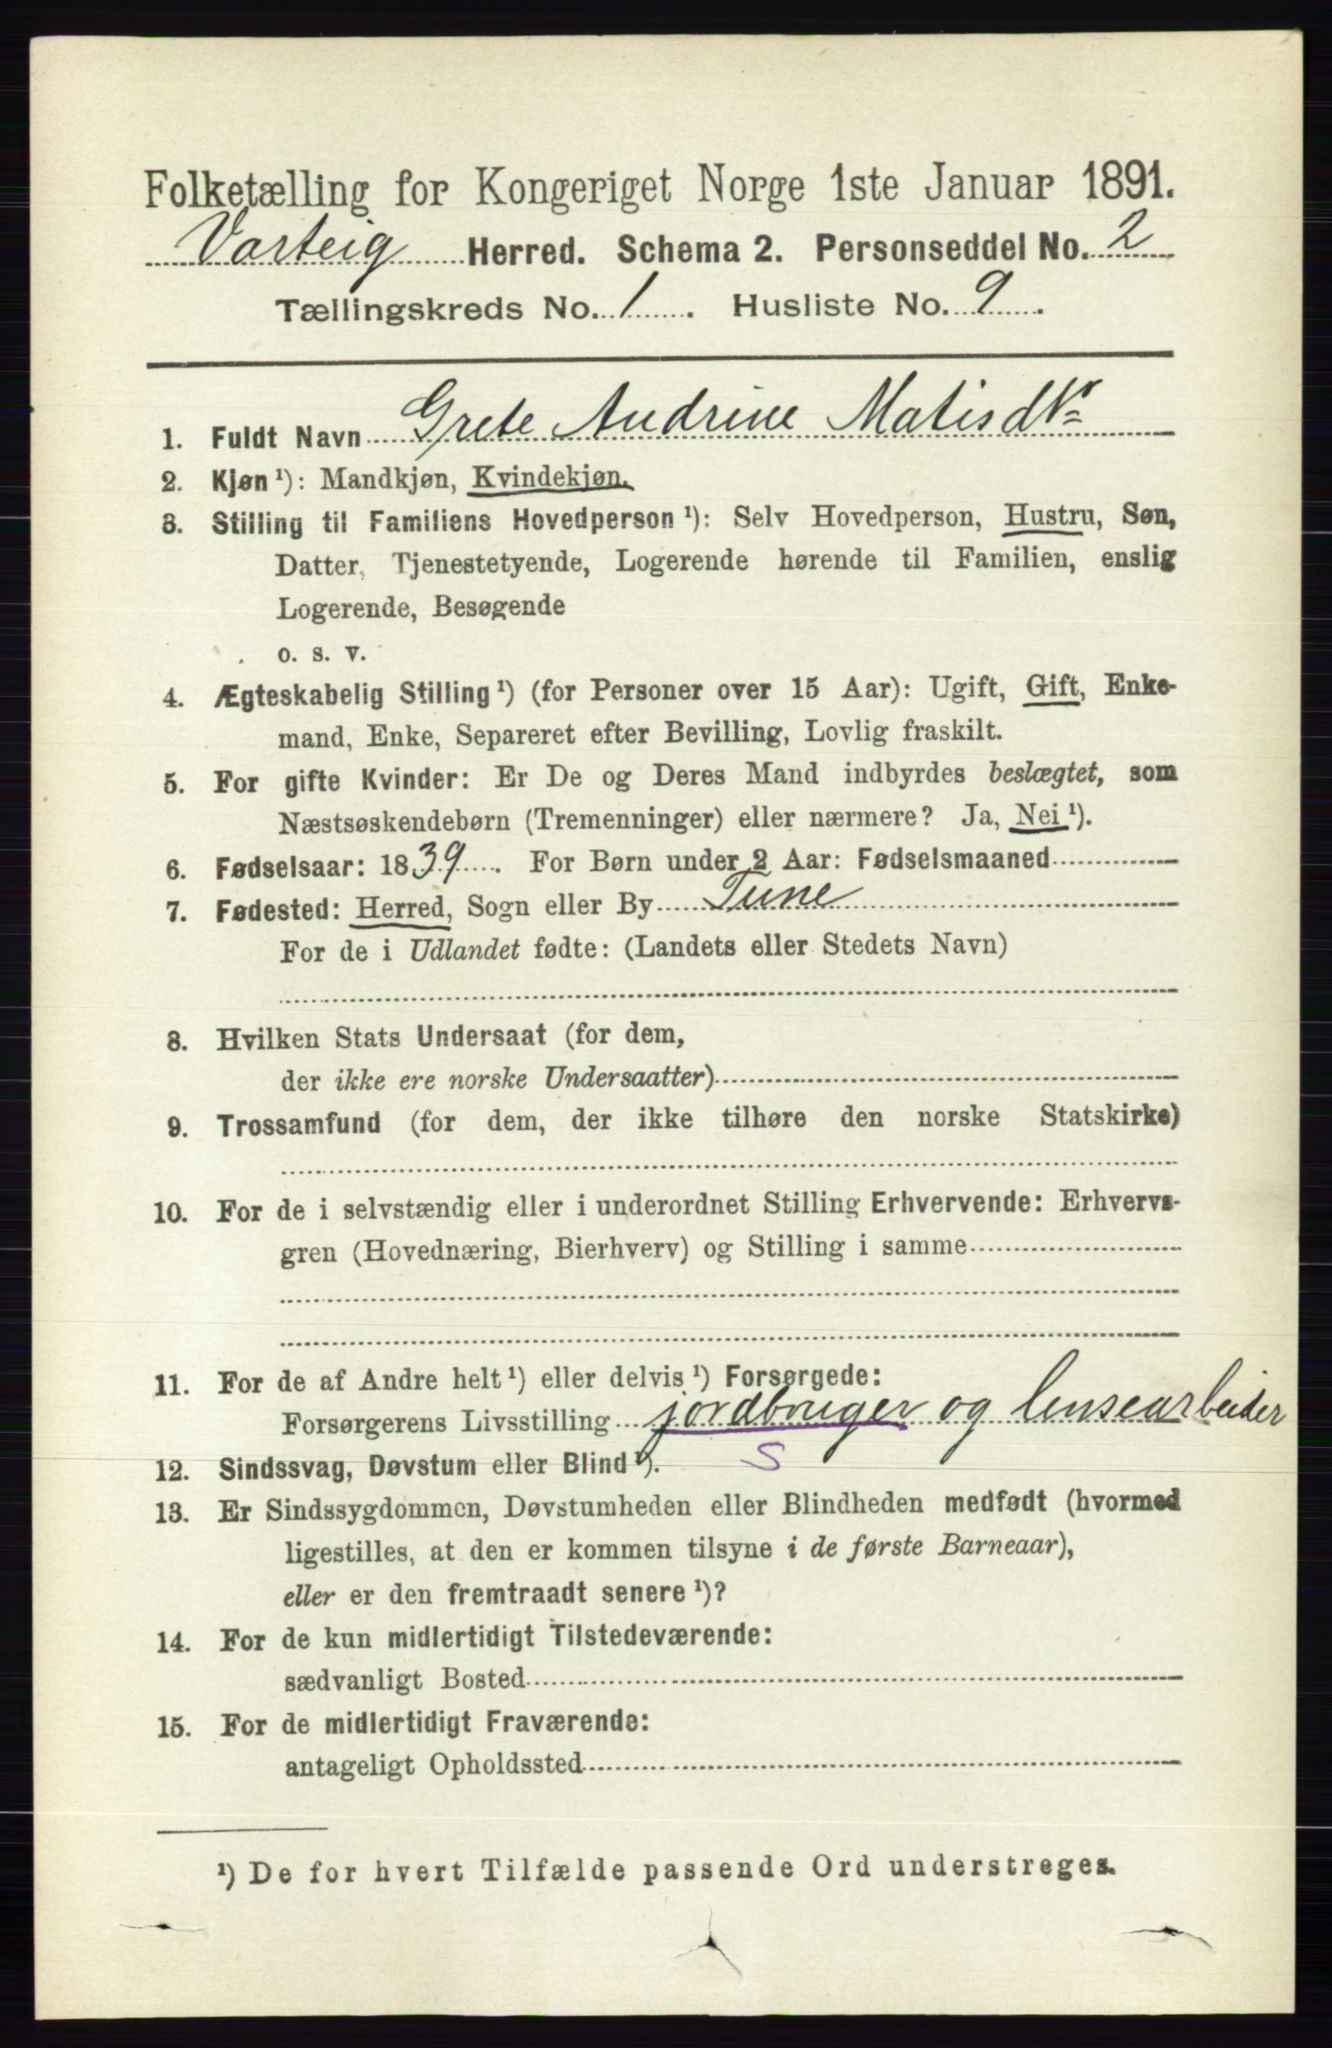 Folketælling for Kongeriget Norge 1ste Januar 1891.
Varteig Herred. Schema 2. Personseddel No. 2
Tællingskreds No. 1. Husliste No. 9.
1. Fuldt Navn Grete Andrine Matisdtr
2. Kjøn ¹): Mandkjøn, Kvindekjøn.
3. Stilling til Familiens Hovedperson ¹): Selv Hovedperson, Hustru, Søn,
Datter, Tjenestetyende, Logerende hørende til Familien, enslig
Logerende, Besøgende
o. s. v.
4. Ægteskabelig Stilling ¹) (for Personer over 15 Aar): Ugift, Gift, Enke-
mand, Enke, Separeret efter Bevilling, Lovlig fraskilt.
5. For gifte Kvinder: Er De og Deres Mand indbyrdes beslægtet, som
Næstsøskendebørn (Tremenninger) eller nærmere? Ja, Nei ¹).
6. Fødselsaar: 1839. For Børn under 2 Aar: Fødselsmaaned
7. Fødested: Herred, Sogn eller By Tune
For de i Udlandet fødte: (Landets eller Stedets Navn)
8. Hvilken Stats Undersaat (for dem,
der ikke ere norske Undersaatter)
9. Trossamfund (for dem, der ikke tilhøre den norske Statskirke)
10. For de i selvstændig eller i underordnet Stilling Erhvervende: Erhvervs-
gren (Hovednæring, Bierhverv) og Stilling i samme
11. For de af Andre helt ¹) eller delvis ¹) Forsørgede:
Forsørgerens Livsstilling jordbruger og lensearbeider
12. Sindssvag, Døvstum eller Blind ¹). S
13. Er Sindssygdommen, Døvstumheden eller Blindheden medfødt (hvormed
ligestilles, at den er kommen tilsyne i de første Barneaar),
eller er den fremtraadt senere ¹)?
14. For de kun midlertidigt Tilstedeværende:
sædvanligt Bosted
15. For de midlertidigt Fraværende:
antageligt Opholdssted
¹) De for hvert Tilfælde passende Ord understreges.